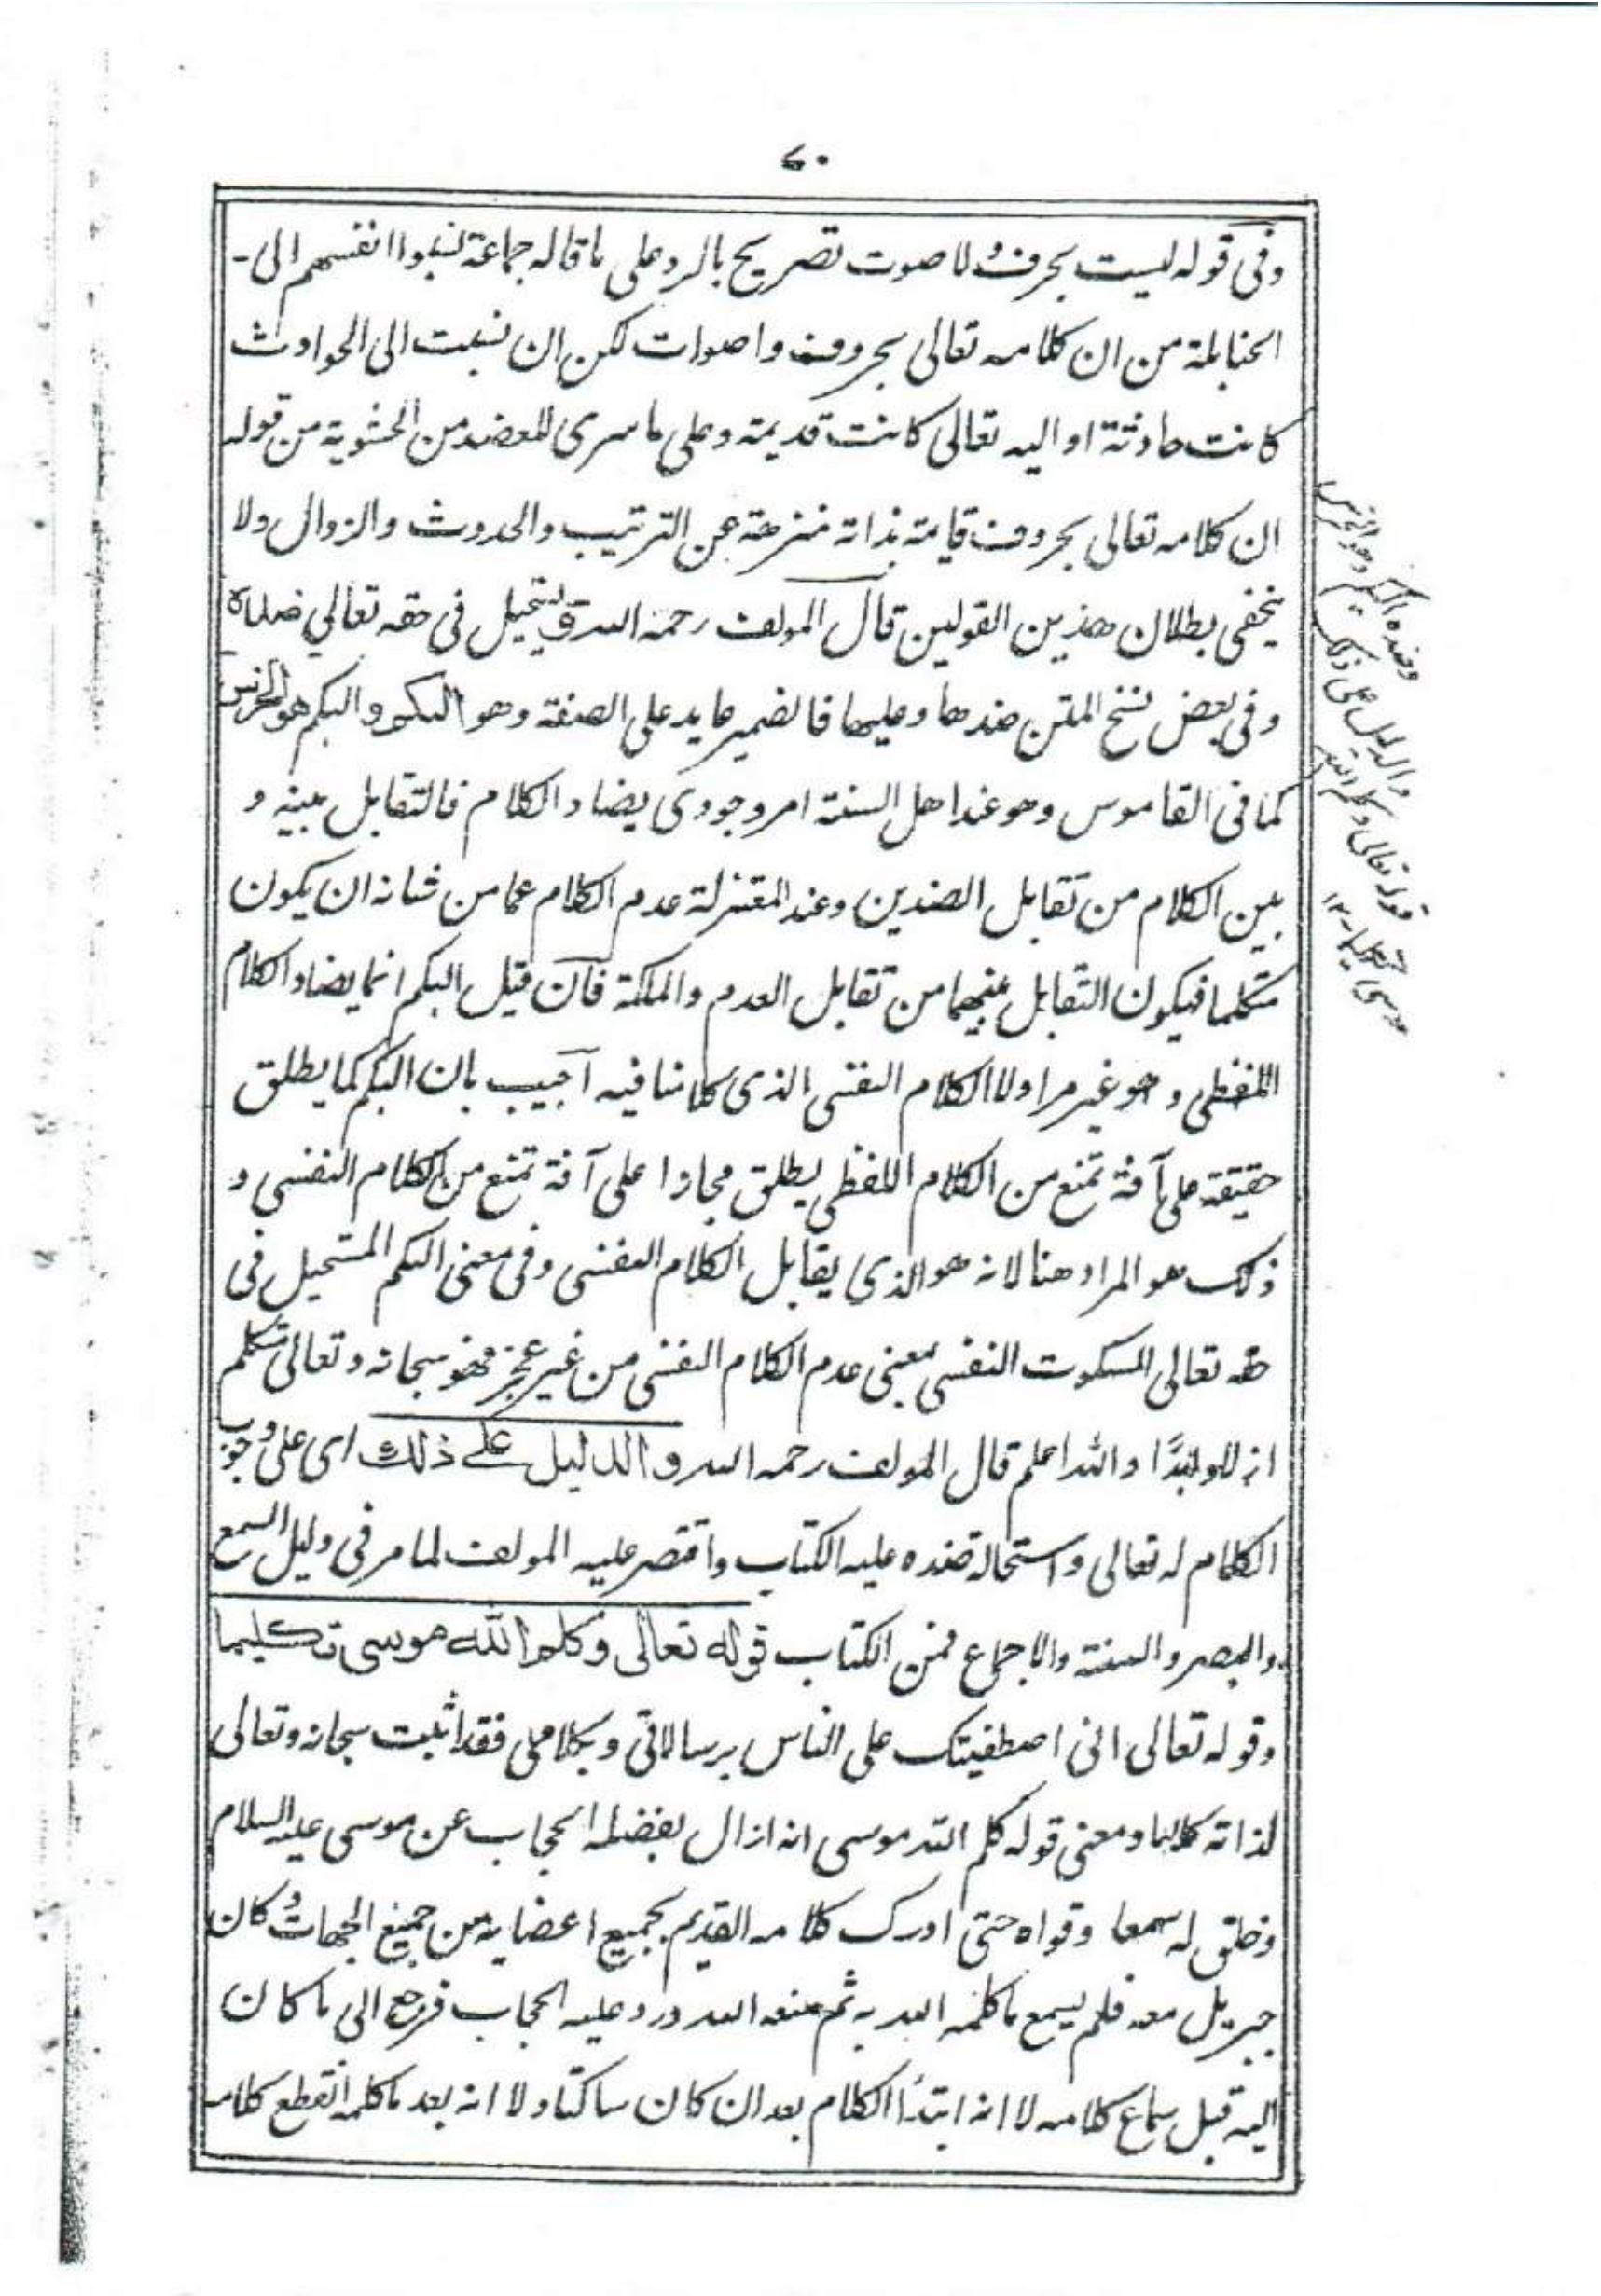 ٧٠
وفى قوله ليست بحرف ولا صوت تصريح بالرد على ما قاله جماعة نسبوا انفسهم الى
الحنابلة من ان كلامه تعالى بحروف واصوات لكن ان نسبت الى الحوادث
كانت حادثة او اليه تعالى كانت قديمة وعلى ما سرى للعضد من الحشوية من قوله
ان كلامه تعالى بحروف قايمة بذاته منزهة عن الترتيب والحدوث والزوال ولا
يخفى بطلان هذين القولين قال المولف رحمه الله ويستحيل فى حقه تعالى ضداه
وفى بعض نسخ المتن ضدها وعليها فالضمير عايد على الصفة وهو البكم والبكم هو الخرس
كما فى القاموس وهو عند اهل السنة امر وجودى يضاد الكلام فالتقابل بينه و
بين الكلام من تقابل الضدين وعند المعتزلة عدم الكلام عما من شانه ان يكون
متكلما فيكون التقابل بينهما من تقابل العدم والملكة فان قيل البكم انما يضاد الكلام
اللفظى وهو غير مراد لا الكلام النفسى الذى كلامنا فيه آجيب بان البكم كما يطلق
حقيقة على آفة تمنع من الكلام اللفظى يطلق مجازا على آفة تمنع من الكلام النفسى و
ذلك هو المراد هنا لانه هو الذى يقابل الكلام النفسى وفى معنى البكم المستحيل فى
حقه تعالى السكوت النفسى بمعنى عدم الكلام النفسى من غير عجز فهو سبحانه وتعالى متكلم
ازلا وابدًا والله اعلم قال المولف رحمه الله والدليل على ذلك اى على وجوب
الكلام له تعالى واستحالة ضده عليه الكتاب واقتصر عليه المولف لما مر فى دليل السمع
والبصر والسنة والاجماع فمن الكتاب قوله تعالى وكلم الله موسى تكليما
وقوله تعالى انى اصطفيتك على الناس برسالاتى وبكلامى فقد اثبت سبحانه وتعالى
لذاته كلاما ومعنى قوله كلم الله موسى انه ازال بفضله الحجاب عن موسى عليه السلام
وخلق له سمعا وقواه حتى ادرك كلامه القديم بجميع اعضايه من جميع الجهات وكان
جبريل معه فلم يسمع ما كلمه الله به ثم منعه الله ورد عليه الحجاب فرجع الى ما كان
اليه قبل سماع كلامه لا انه ابتدأ الكلام بعد ان كان ساكتا ولا انه بعد ما كلمه انقطع كلامه
وضده البكم وهو الخرس
والدليل على ذلك
قوله تعالى وكلم الله
موسى تكليما ١٢